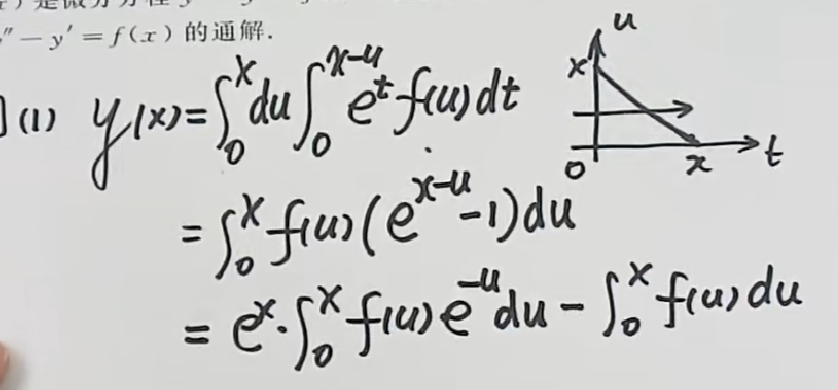 ″ − y′ = f(x) 的通解.
(1) y(x) = ∫₀ˣ du ∫₀ˣ⁻ᵘ eᵗ f(u) dt
= ∫₀ˣ f(u) (eˣ⁻ᵘ − 1) du
= eˣ · ∫₀ˣ f(u) e⁻ᵘ du − ∫₀ˣ f(u) du
u
x
0 x t